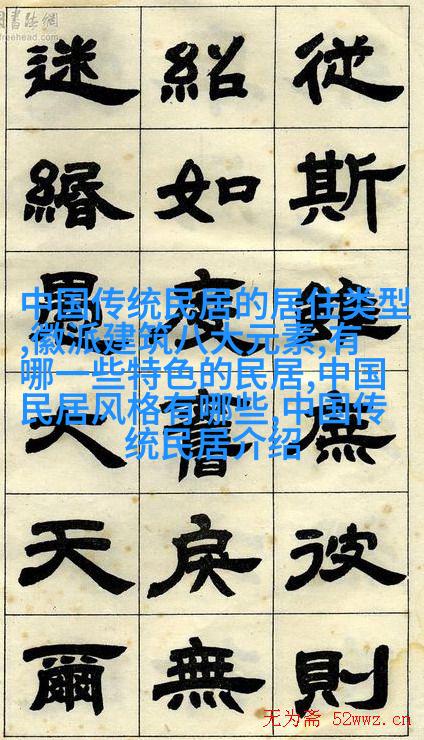 書法網
freehead.com
從斯無彼則
紹如戾無
迷緡天爾
中国传统民居的居住类型
,徽派建筑八大元素,有
哪一些特色的民居,中国
民居风格有哪些,中国传
统民居介绍
无为斋 52wwz.cn